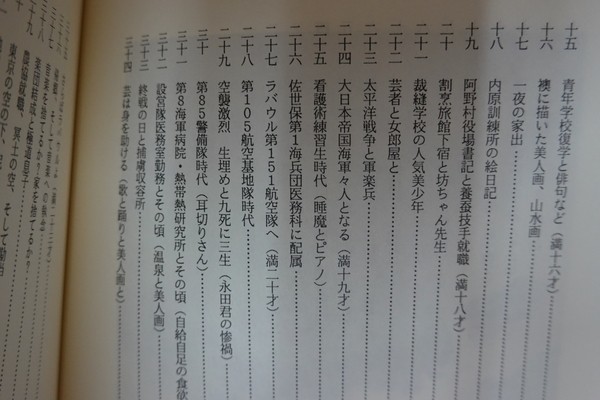 十五 青年学校復学と俳句など（満十六才）
十六 襖に描いた美人画、山水画
十七 一夜の家出
十八 内原訓練所の絵日記
十九 阿野村役場書記と養蚕技手就職（満十八才）
二十 割烹旅館下宿と坊ちゃん先生
二十一 裁縫学校の人気美少年
二十二 芸者と女郎屋と
二十三 太平洋戦争と軍楽兵
二十四 大日本帝国海軍々人となる（満十九才）
二十五 看護術練習生時代（睡魔とピアノ）
二十六 佐世保第１海兵団医務科に配属
二十七 ラバウル第１５１航空隊へ（満二十才）
二十八 第１０５航空基地隊時代
二十九 空襲激烈 生埋めと九死に三生（永田君の惨禍）
三十 第８５警備隊時代（耳切りさん）
三十一 第８海軍病院・熱帯熱研究所とその頃（自給自足の食欲
三十二 設営隊医務室勤務とその頃（温泉と美人画）
三十三 終戦の日と捕虜収容所
三十四 芸は身を助ける（歌と踊りと美人画と）
音楽を捨てるか！家を捨てるか
楽団結成と極道息子
農協就職、冥土の空、そして
東京の空の下、